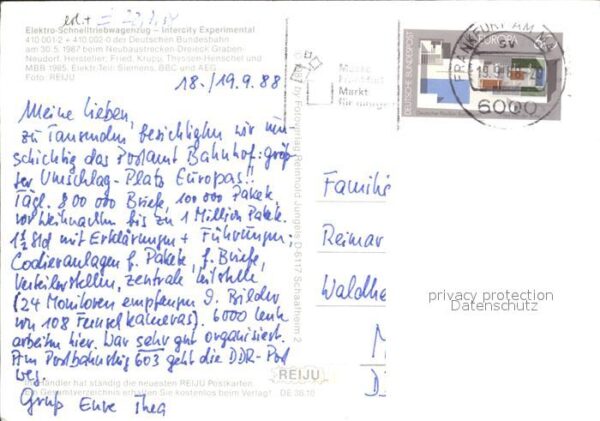 Elektro-Schnelltriebwagenzug – Intercity Experimental
410 001-2 + 410 002-0 der Deutschen Bundesbahn
am 30.5.1987 beim Neubaustrecken-Dreieck Graben-
Neudorf. Hersteller: Fried. Krupp, Thyssen-Henschel und
MBB 1985. Elektr.-Teil: Siemens, BBC und AEG
Foto: REIJU
18./19.9.88
Meine Lieben,
zu Tausenden besichtigten wir
schichtig das Postamt Bahnhof: größ
ter Umschlag-Platz Europas!!
Tägl. 800 000 Briefe, 100 000 Pakete,
vor Weihnachten bis zu 1 Million Pakete.
1½ Std mit Erklärungen + Führungen;
Codieranlagen f. Pakete, f. Briefe,
Verteilerstellen, zentrale Leitstelle
(24 Monitoren empfangen d. Bilder
von 108 Fernsehkameras). 6000 Leute
arbeiten hier. War sehr gut organisiert.
Am Postbahnsteig 603 geht die DDR-Post
weg.
Gruß Eure Thea
Ihr Händler hat ständig die neuesten REIJU Postkarten.
Ein Gesamtverzeichnis erhalten Sie kostenlos beim Verlag! DE 36.10
REIJU
1987 by Fotoverlag Reinhold Jungels D-6117 Schaafheim 2
Messe
Frankfurt
Markt
für
DEUTSCHE BUNDESPOST
EUROPA
60
FRANKFURT AM MAIN
19.9.88
6000
Familie
Reimar
Waldhe
privacy protection
Datenschutz